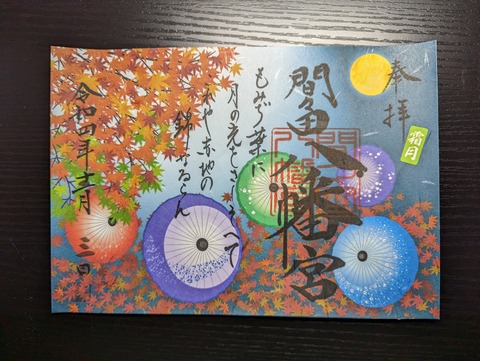 奉拝
霜月
八幡宮
もみぢ葉に
月の光をさしそへて
これや赤地の
錦なるらん
令和四年十一月三日